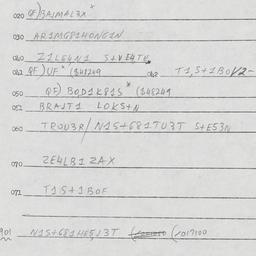 020 QF)BAIMAL3X*
030 AR1MG81HONG1N
040 Z1LE4N1 S+VE4TK
042 QF)UF*($48249 062 T1,S+1BO1/2-
050 QF) BOD1K81S*($48249
052 BRAIT1 LOKS+N
060 TROU3R/N1S+681TU3T S+E53N
070 ZE4LB1ZAX
072 T1S+1BOF
901 N1S+681HE5J3T (1017100